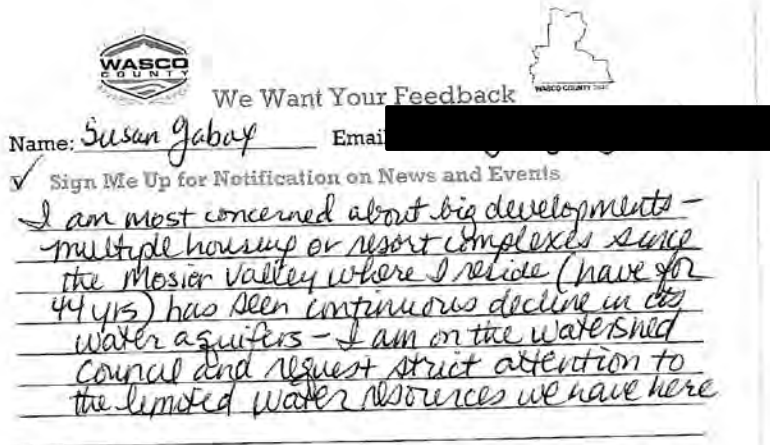 WASCO
COUNTY
WASCO COUNTY
We Want Your Feedback
Name: Susan Gabay Email
✓ Sign Me Up for Notification on News and Events
I am most concerned about big developments -
multiple housing or resort complexes since
the Mosier Valley where I reside (have for
44 yrs) has seen continuous decline in its
water aquifers - I am on the Watershed
Council and request strict attention to
the limited water resources we have here